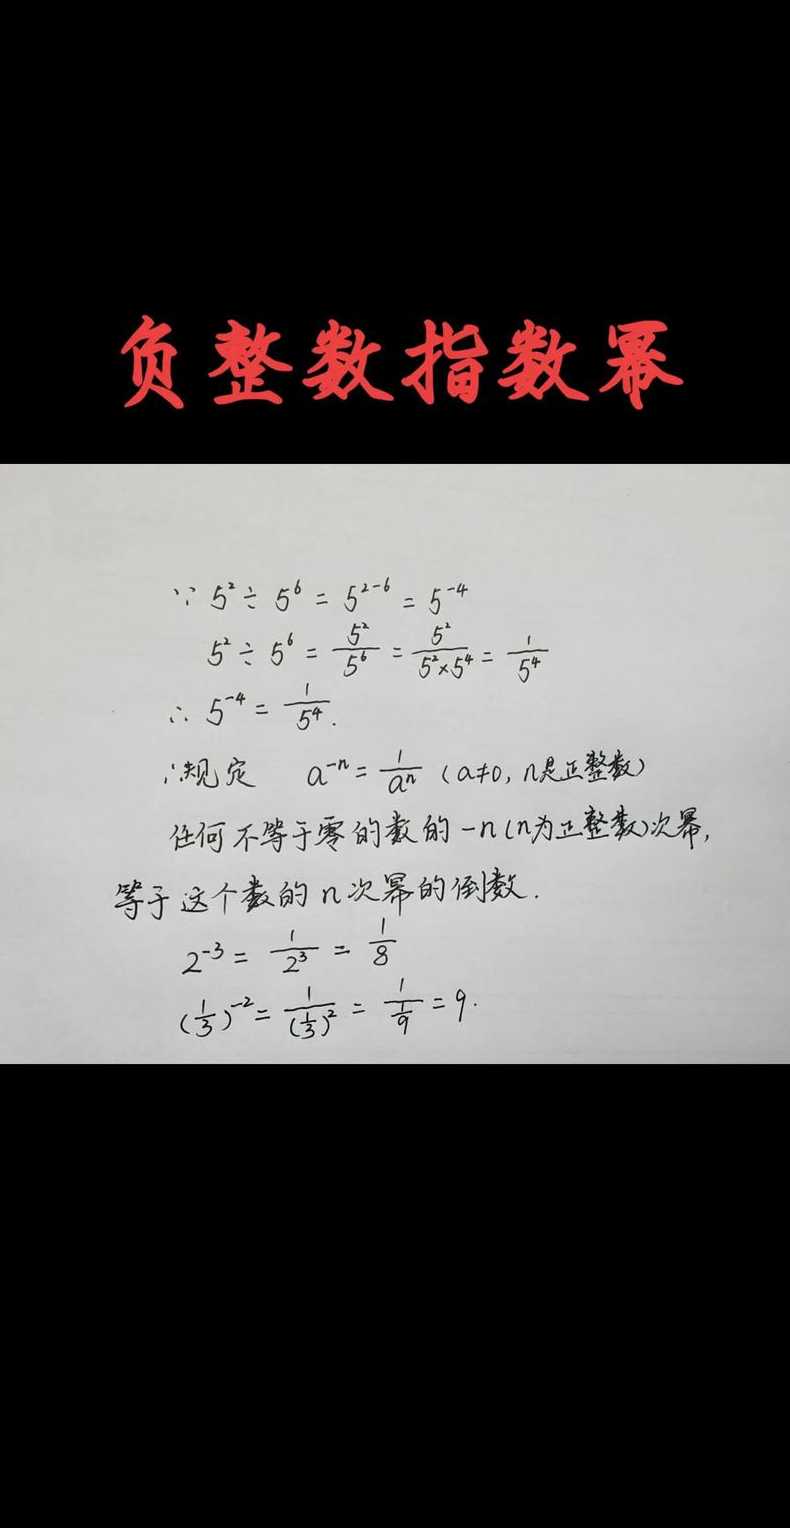 负整数指数幂
∵ 5² ÷ 5⁶ = 5²⁻⁶ = 5⁻⁴
5² ÷ 5⁶ = 5²/5⁶ = 5²/(5²×5⁴) = 1/5⁴
∴ 5⁻⁴ = 1/5⁴.
∴规定 a⁻ⁿ = 1/aⁿ (a≠0, n是正整数)
任何不等于零的数的 -n (n为正整数)次幂,
等于这个数的n次幂的倒数.
2⁻³ = 1/2³ = 1/8
(1/3)⁻² = 1/(1/3)² = 1/(1/9) = 9.